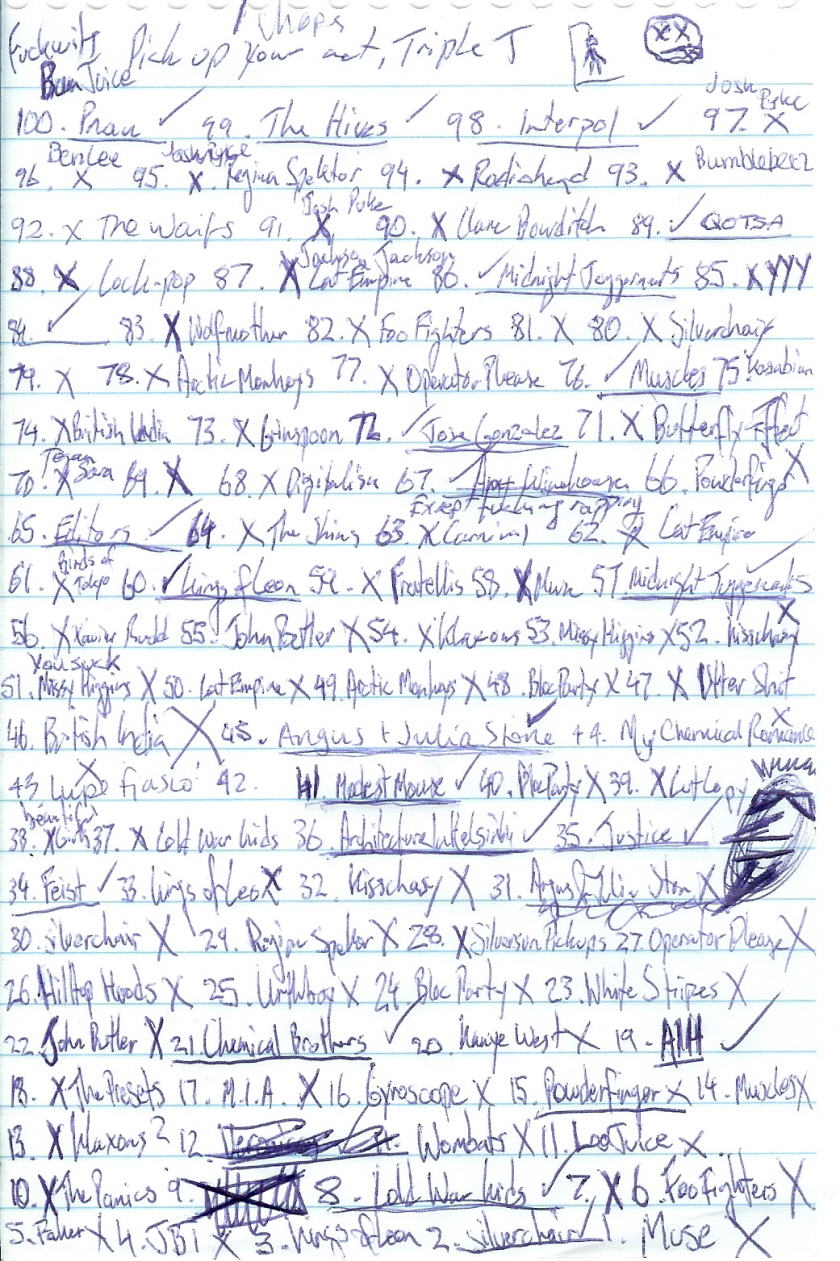 Chops
Fuckwits Pick up your act, Triple J
Bum Juice Josh Pyke
100. Pnau ✓ 99. The Hives ✓ 98. Interpol ✓ 97. X
Ben Lee Josh Pyke Bumblebeez
96. X 95. X Regina Spektor 94. X Radiohead 93. X
Josh Puke
92. X The Waifs 91. X 90. X Clare Bowditch 89. ✓ QOTSA
Jackson Jackson
88. X Lock-pop 87. X Cat Empire 86. ✓ Midnight Juggernauts 85. X YYY
84. ✓ 83. X Wolfmother 82. X Foo Fighters 81. X 80. X Silverchair
79. X 78. X Arctic Monkeys 77. X Operator Please 76. ✓ Muscles 75 Kasabian
74. X British India 73. X Grinspoon 72. ✓ Jose Gonzalez 71. X Butterfly Effect
Tegan
70. X Sara 69. X 68. X Digitalism 67. ✓ Amy Winehouse 66. Powderfinger X
Except fucking rapping
65. Editors ✓ 64. X The Shins 63. X Carnival 62. X Cat Empire
Birds of
61. X Tokyo 60. ✓ Kings of Leon 59. X Fratellis 58. X Muse 57. Midnight Juggernauts ✓
56. X Xavier Rudd 55. John Butler X 54. X Klaxons 53. Missy Higgins X 52. Kisschasy X
You suck
51. Missy Higgins X 50. Cat Empire X 49. Arctic Monkeys X 48. Bloc Party X 47. X Utter Shit
46. British India X 45. Angus + Julia Stone ✓ 44. My Chemical Romance X
43. Lupe Fiasco X 42. 41. Modest Mouse ✓ 40. Bloc Party X 39. X Cut Copy
beautiful
38. X Girls 37. X Cold War Kids 36. Architecture in Helsinki ✓ 35. Justice ✓
34. Feist ✓ 33. Kings of Leon X 32. Kisschasy X 31. Angus & Julia Stone X
30. Silverchair X 29. Regina Spektor X 28. X Silversun Pickups 27. Operator Please X
26. Hilltop Hoods X 25. Urthboy X 24. Bloc Party X 23. White Stripes X
22. John Butler X 21. Chemical Brothers ✓ 20. Kanye West X 19. AIH ✓
18. X The Presets 17. M.I.A. X 16. Gyroscope X 15. Powderfinger X 14. Muscles X
13. X Klaxons 2 12. Wombats X 11. Loo Juice X
10. X The Panics 9. 8. Cold War Kids ✓ 7. X 6. Foo Fighters X
5. Faker X 4. JBT X 3. Kings of Leon 2. Silverchair ✓ 1. Muse X